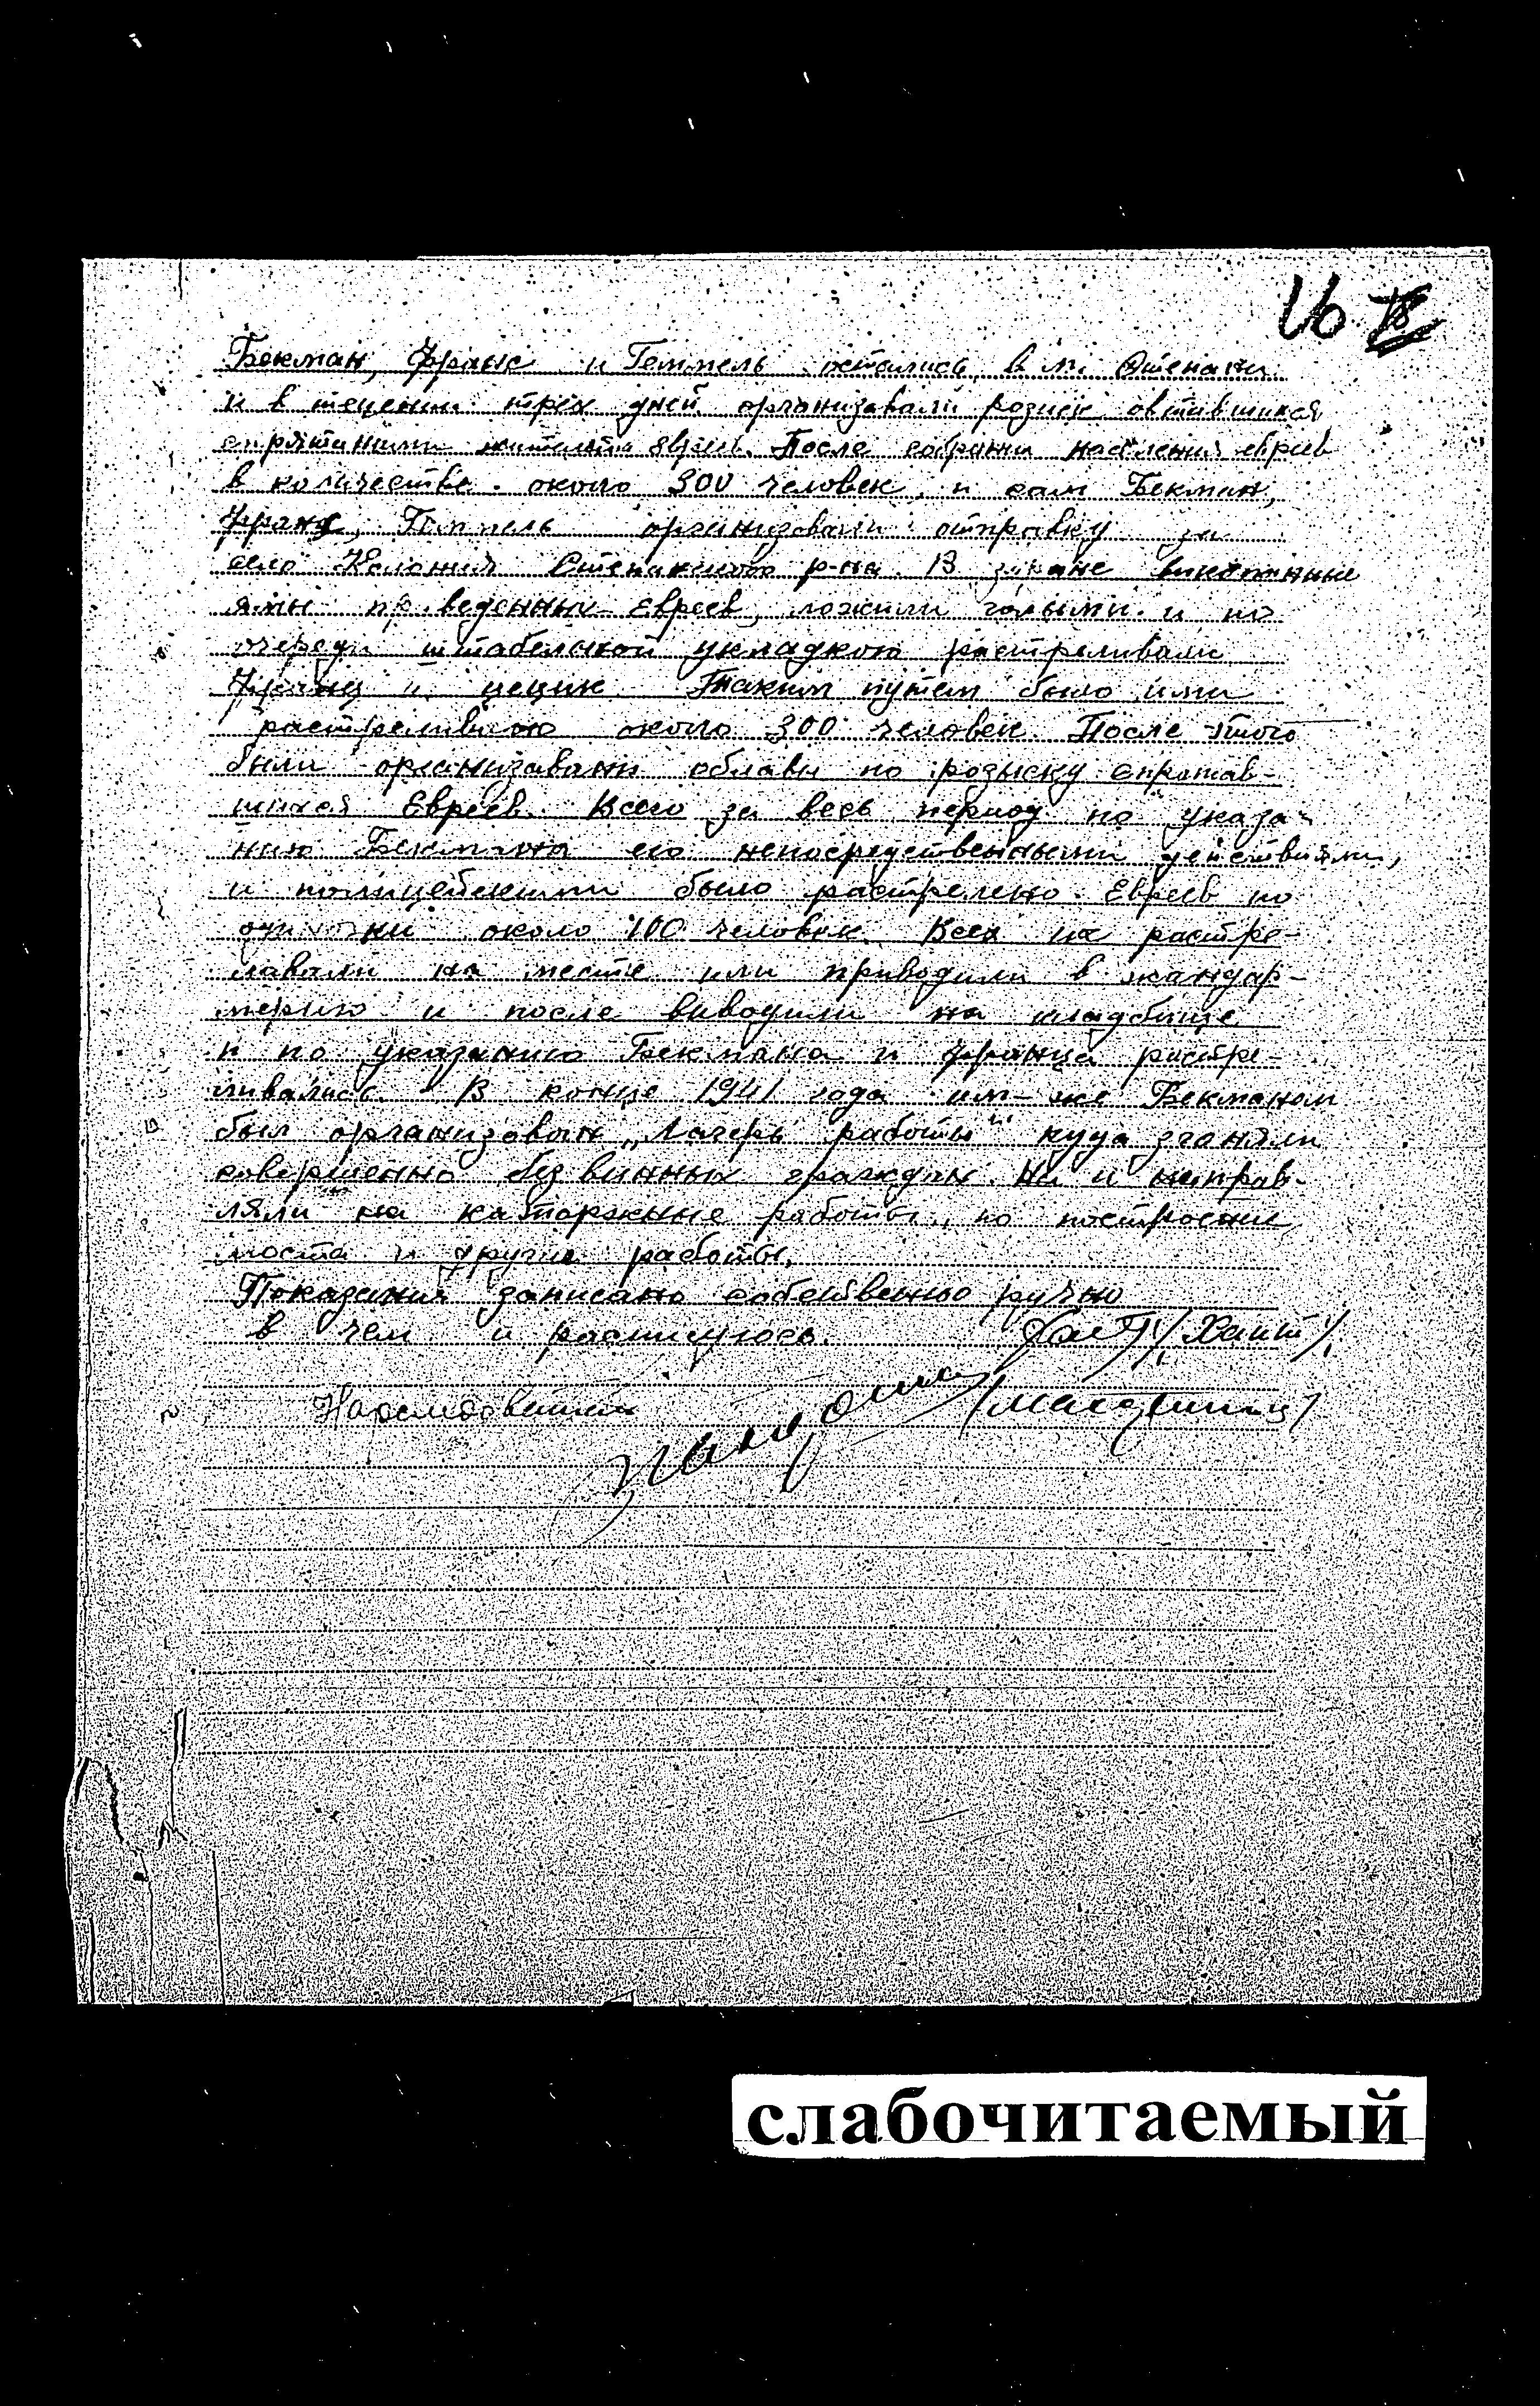 16
Бекман, Франс и Геммель остались в м. Степани
и в тецении трех дней организавали розиск овтавшихся
спрятаними жителями евреев. После собрания населения евреев
в количестве около 300 человек, и сам Бекман,
Франц, Геммель организовали отправку за
село Колония Степанского р-на. В заране викопанные
ямы приведенных Евреев, ложили голыми и по
очереди штабельной укладкою растреливали
Франц и цецик. Таким путем было ими
растреливано около 300 человек. После этого
были организавани облави по розыску спрятав-
шихся Евреев. Всего за весь период по указа-
нию Бекмана его непосредственными действиями,
и полицейскими было растрелено Евреев по
одиночки около 100 человек. Всех их растре-
лавали на месте или приводили в жандар-
мерию и после виводили на кладбище
и по указанию Бекмана и Франца растре-
ливались. В конце 1941 года им-же Бекманом
был организован „Лагерь работы" куда зганяли
совершенно без винных граждан. Их и направ-
ляли на каторжные работы, по построение
моста и другие работы.
Показания записано собственно ручно
в чем и роспишуюсь. /Хаит/
Нарследователь
слабочитаемый